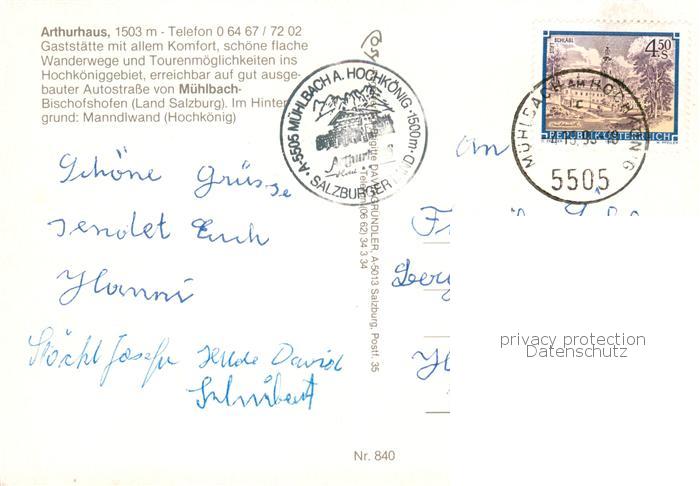 Arthurhaus, 1503 m - Telefon 0 64 67 / 72 02
Gaststätte mit allem Komfort, schöne flache
Wanderwege und Tourenmöglichkeiten ins
Hochköniggebiet, erreichbar auf gut ausge-
bauter Autostraße von Mühlbach-
Bischofshofen (Land Salzburg). Im Hinter-
grund: Manndlwand (Hochkönig)
A-5505 MÜHLBACH A. HOCHKÖNIG · 1500m
Arthurhaus
SALZBURGER LAND
STIFT SCHLÄGL
4.50 S
REPUBLIK ÖSTERREICH
MÜHLBACH AM HOCHKÖNIG
5505
DAVID-GRÜNDLER, A-5013 Salzburg, Postf. 35
Telefon (06 62) 34 3 34
An
Schöne Grüsse
sendet Euch
Hanni
Stöckl Josefa Hilde David
privacy protection
Datenschutz
Nr. 840